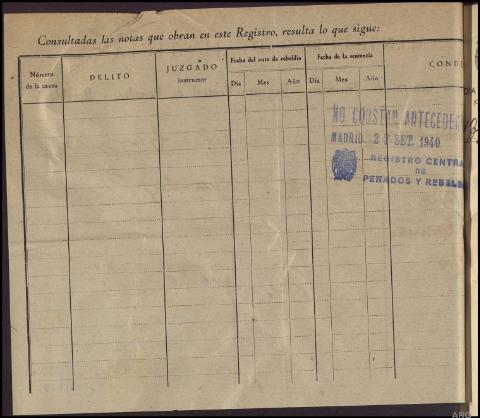 Consultadas las notas que obran en este Registro, resulta lo que sigue:
Número de la causa DELITO JUZGADO instructor Fecha del auto de rebeldía Día Mes Año Fecha de la sentencia Día Mes Año COND
NO CONSTAN ANTECEDE
MADRID 2 SET. 1940
REGISTRO CENTRA
DE
PENADOS Y REBEL